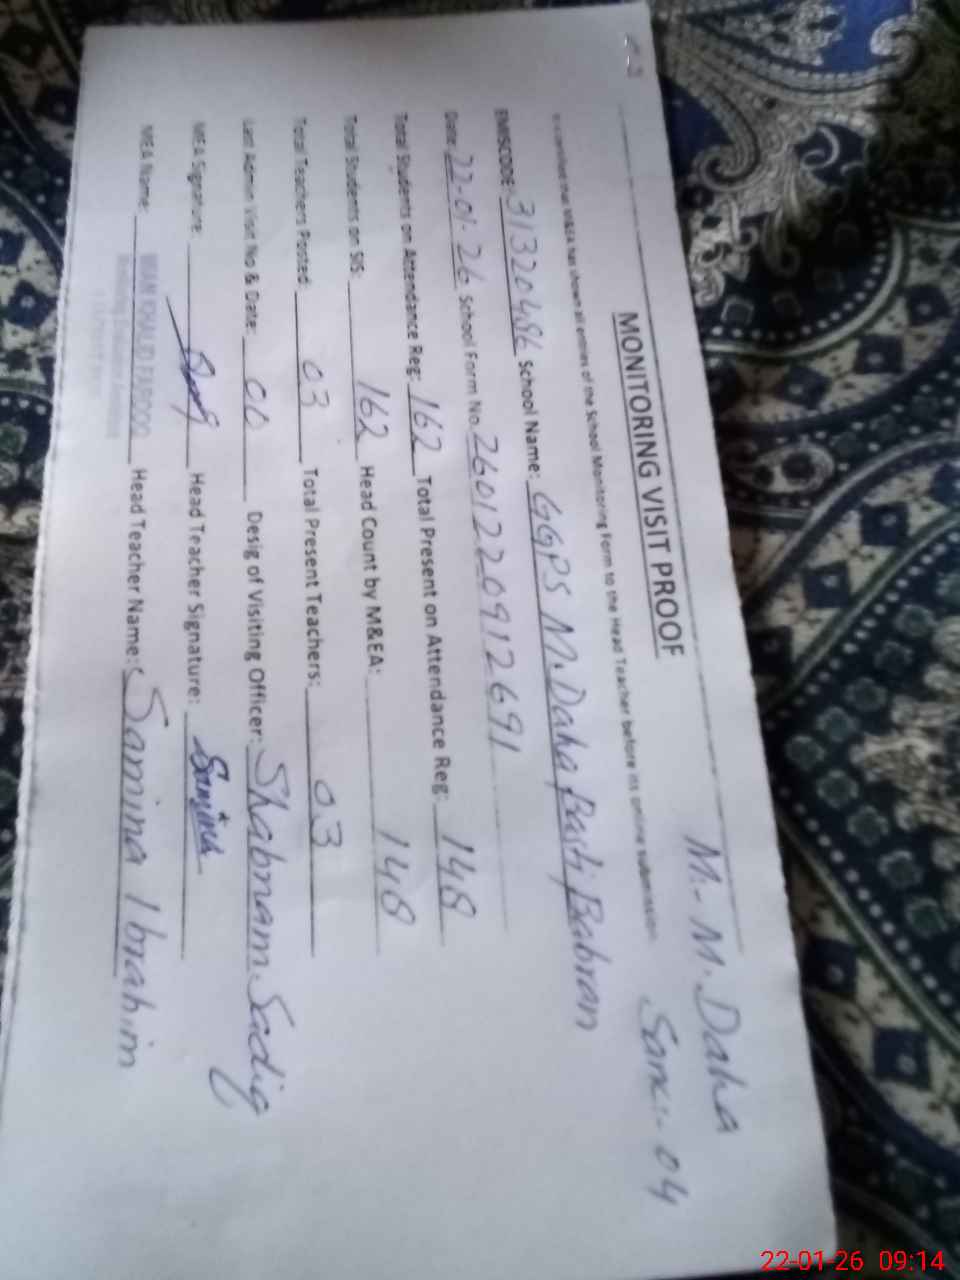 M.. M. Daha
Sanc:- 04
MONITORING VISIT PROOF
that M&EA has shown all entries of the School Monitoring Form to the Head Teacher before its online submission.
EMISCODE: 31320486 School Name: GGPS M. Daha Basti Babran
Date: 22-01-26 School Form No. 2601220912691
Total Students on Attendance Reg: 162 Total Present on Attendance Reg: 148
Total Students on SIS: 162 Head Count by M&EA: 148
Total Teachers Posted 03 Total Present Teachers: 03
Last Admin Visit No & Date: 00 Desig of Visiting Officer: Shabnam Sadiq
MEA Signature: Head Teacher Signature: Samina
MEA Name: KHALID FAROOQ Head Teacher Name: Samina Ibrahim
22-01-26 09:14